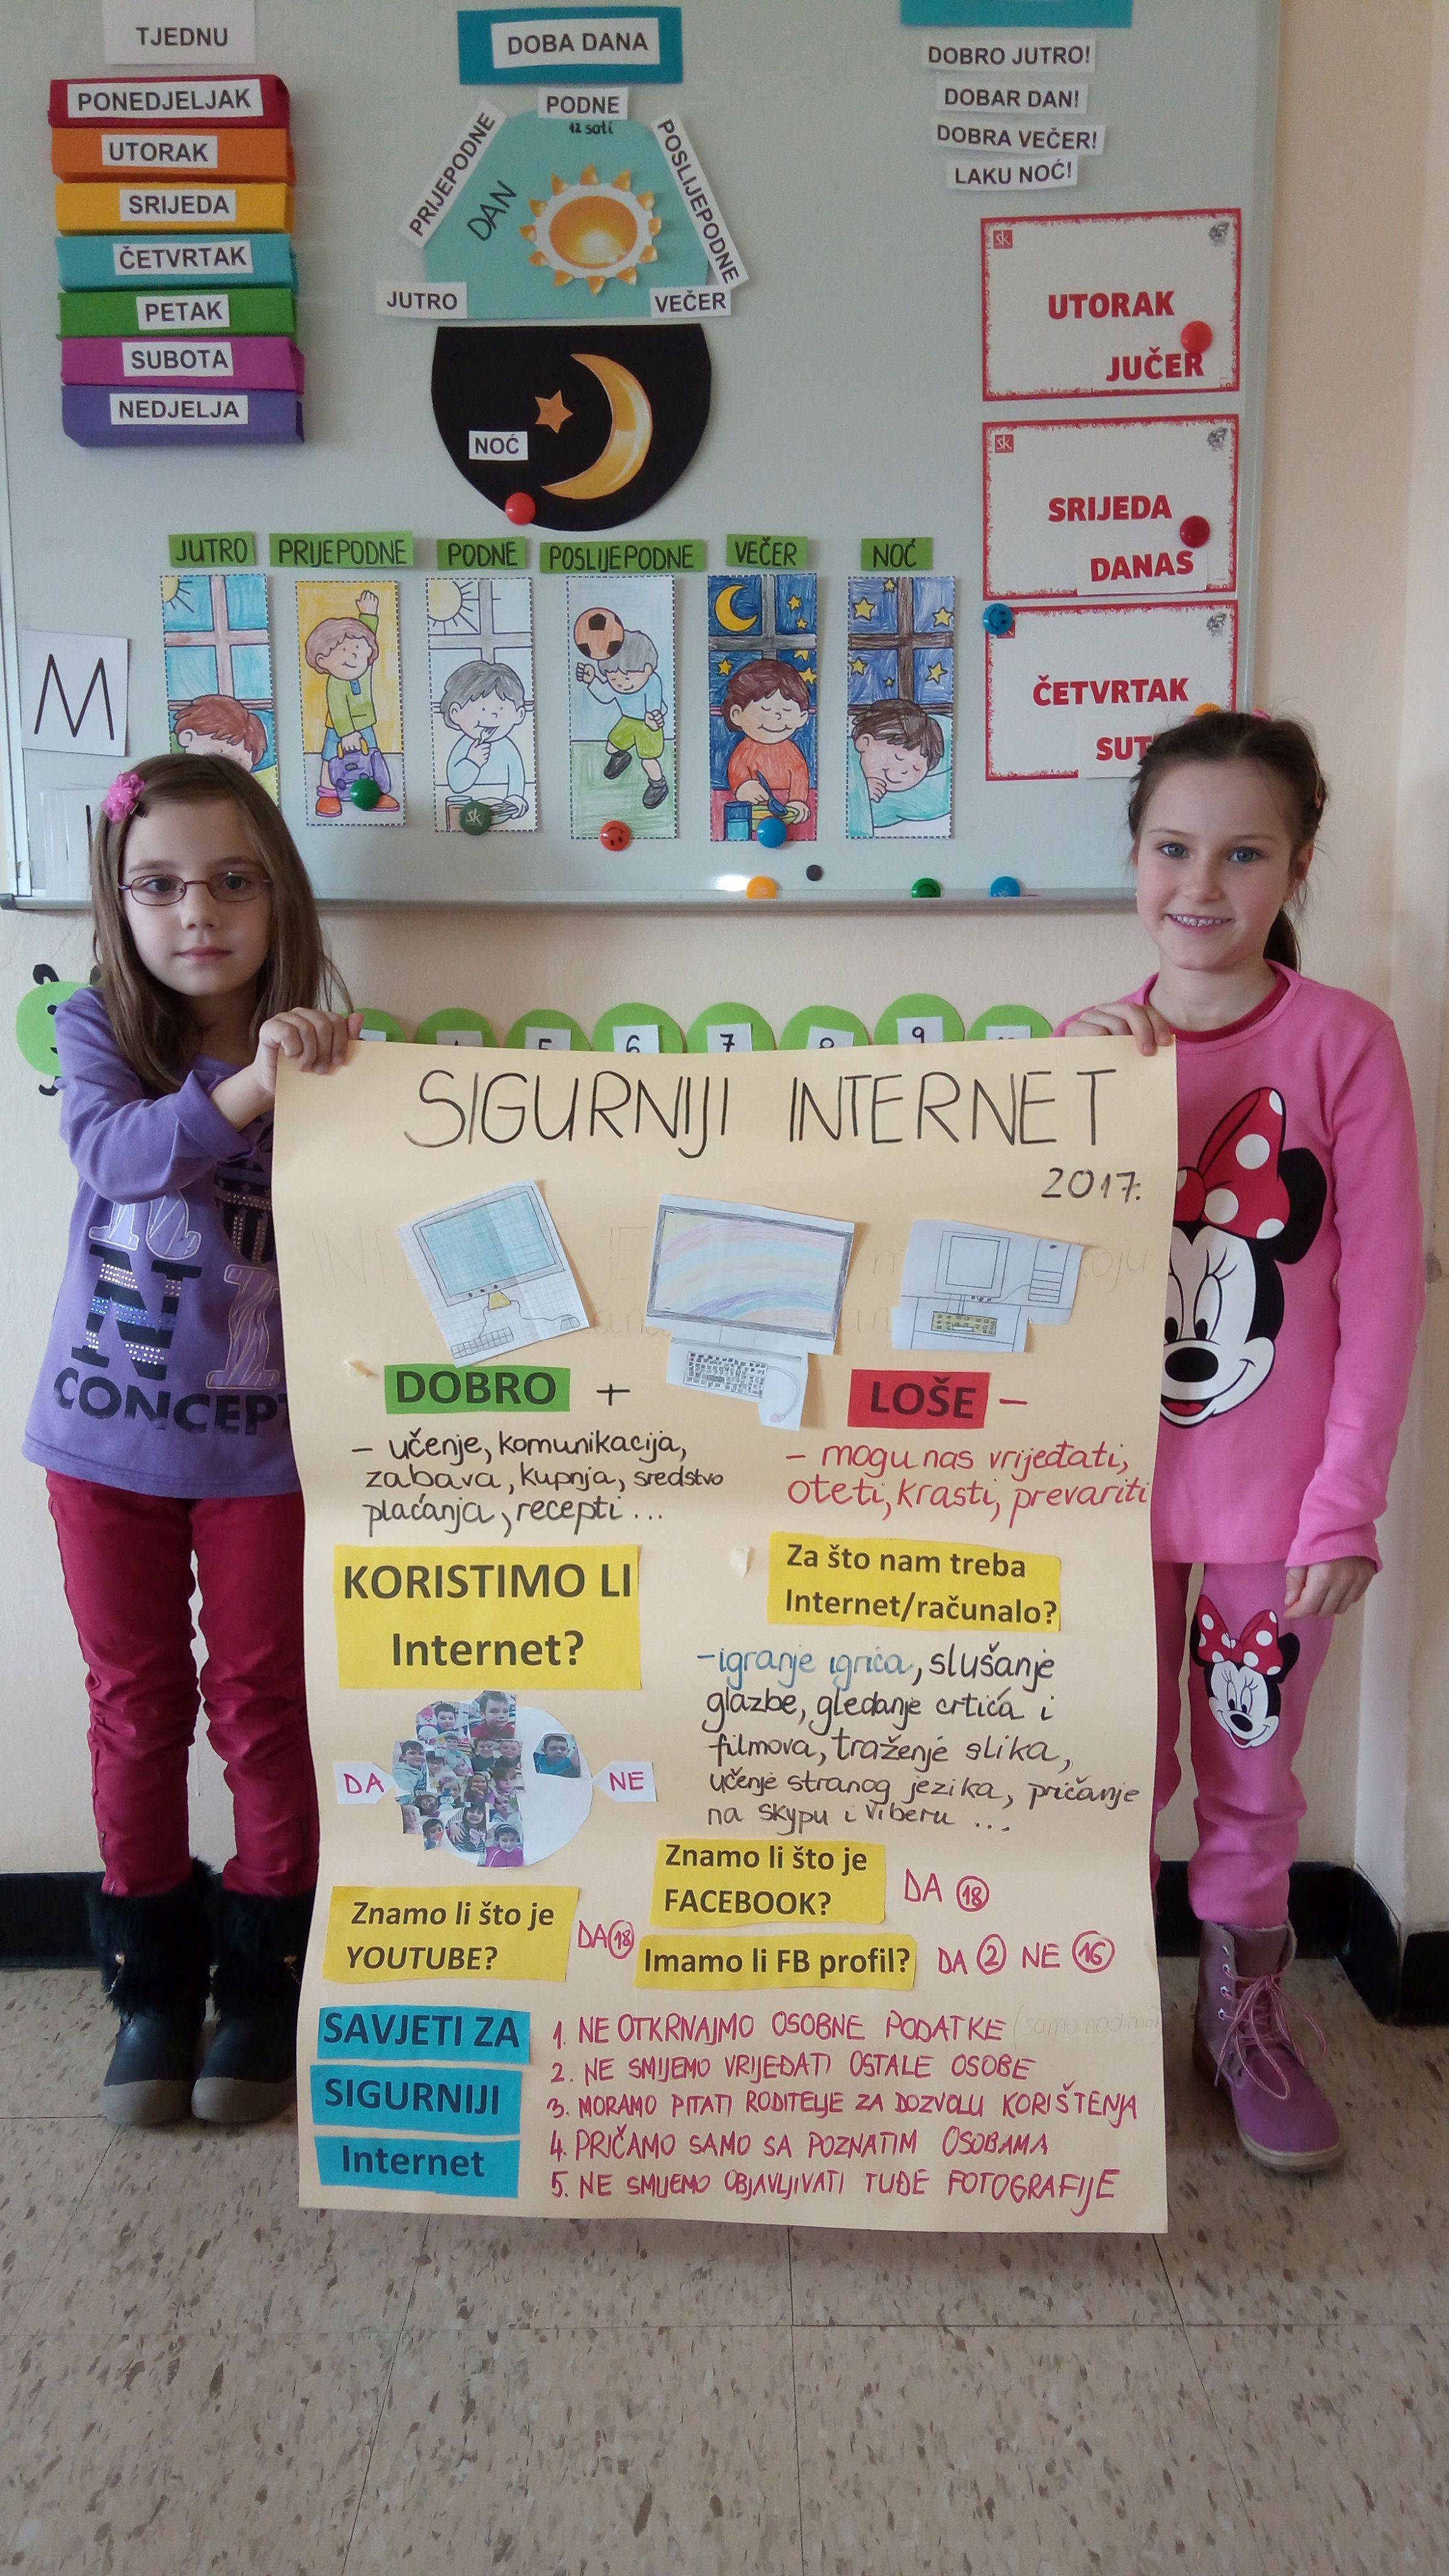 TJEDNU
PONEDJELJAK
UTORAK
SRIJEDA
ČETVRTAK
PETAK
SUBOTA
NEDJELJA
DOBA DANA
PODNE
12 sati
PRIJEPODNE
DAN
POSLIJEPODNE
JUTRO
VEČER
NOĆ
DOBRO JUTRO!
DOBAR DAN!
DOBRA VEČER!
LAKU NOĆ!
sk
UTORAK
JUČER
sk
SRIJEDA
DANAS
ČETVRTAK
JUTRO PRIJEPODNE PODNE POSLIJEPODNE VEČER NOĆ
M
sk
5 6 7 8 9
CONCEPT
SIGURNIJI INTERNET
2017.
DOBRO +
– učenje, komunikacija,
zabava, kupnja, sredstvo
plaćanja, recepti...
LOŠE –
– mogu nas vrijeđati,
oteti, krasti, prevariti
KORISTIMO LI
Internet?
DA
NE
Za što nam treba
Internet/računalo?
–igranje igrica, slušanje
glazbe, gledanje crtića i
filmova, traženje slika,
učenje stranog jezika, pričanje
na skypu i viberu ...
Znamo li što je
FACEBOOK?
DA 18
Znamo li što je
YOUTUBE?
DA 18
Imamo li FB profil?
DA 2 NE 16
SAVJETI ZA
SIGURNIJI
Internet
1. NE OTKRNAJMO OSOBNE PODATKE
2. NE SMIJEMO VRIJEĐATI OSTALE OSOBE
3. MORAMO PITATI RODITELJE ZA DOZVOLU KORIŠTENJA
4. PRIČAMO SAMO SA POZNATIM OSOBAMA
5. NE SMIJEMO OBJAVLJIVATI TUĐE FOTOGRAFIJE